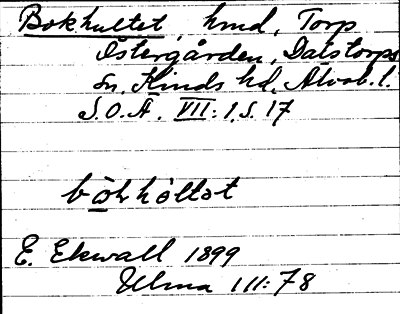 Bokhultet, hmd, Torp
Östergården, Dalstorps
sn, Kinds hd, Älvsb. l.
S.O.Ä. VII: 1, S. 17
bòkhòltət
E. Ekwall 1899
Ulma 111:78